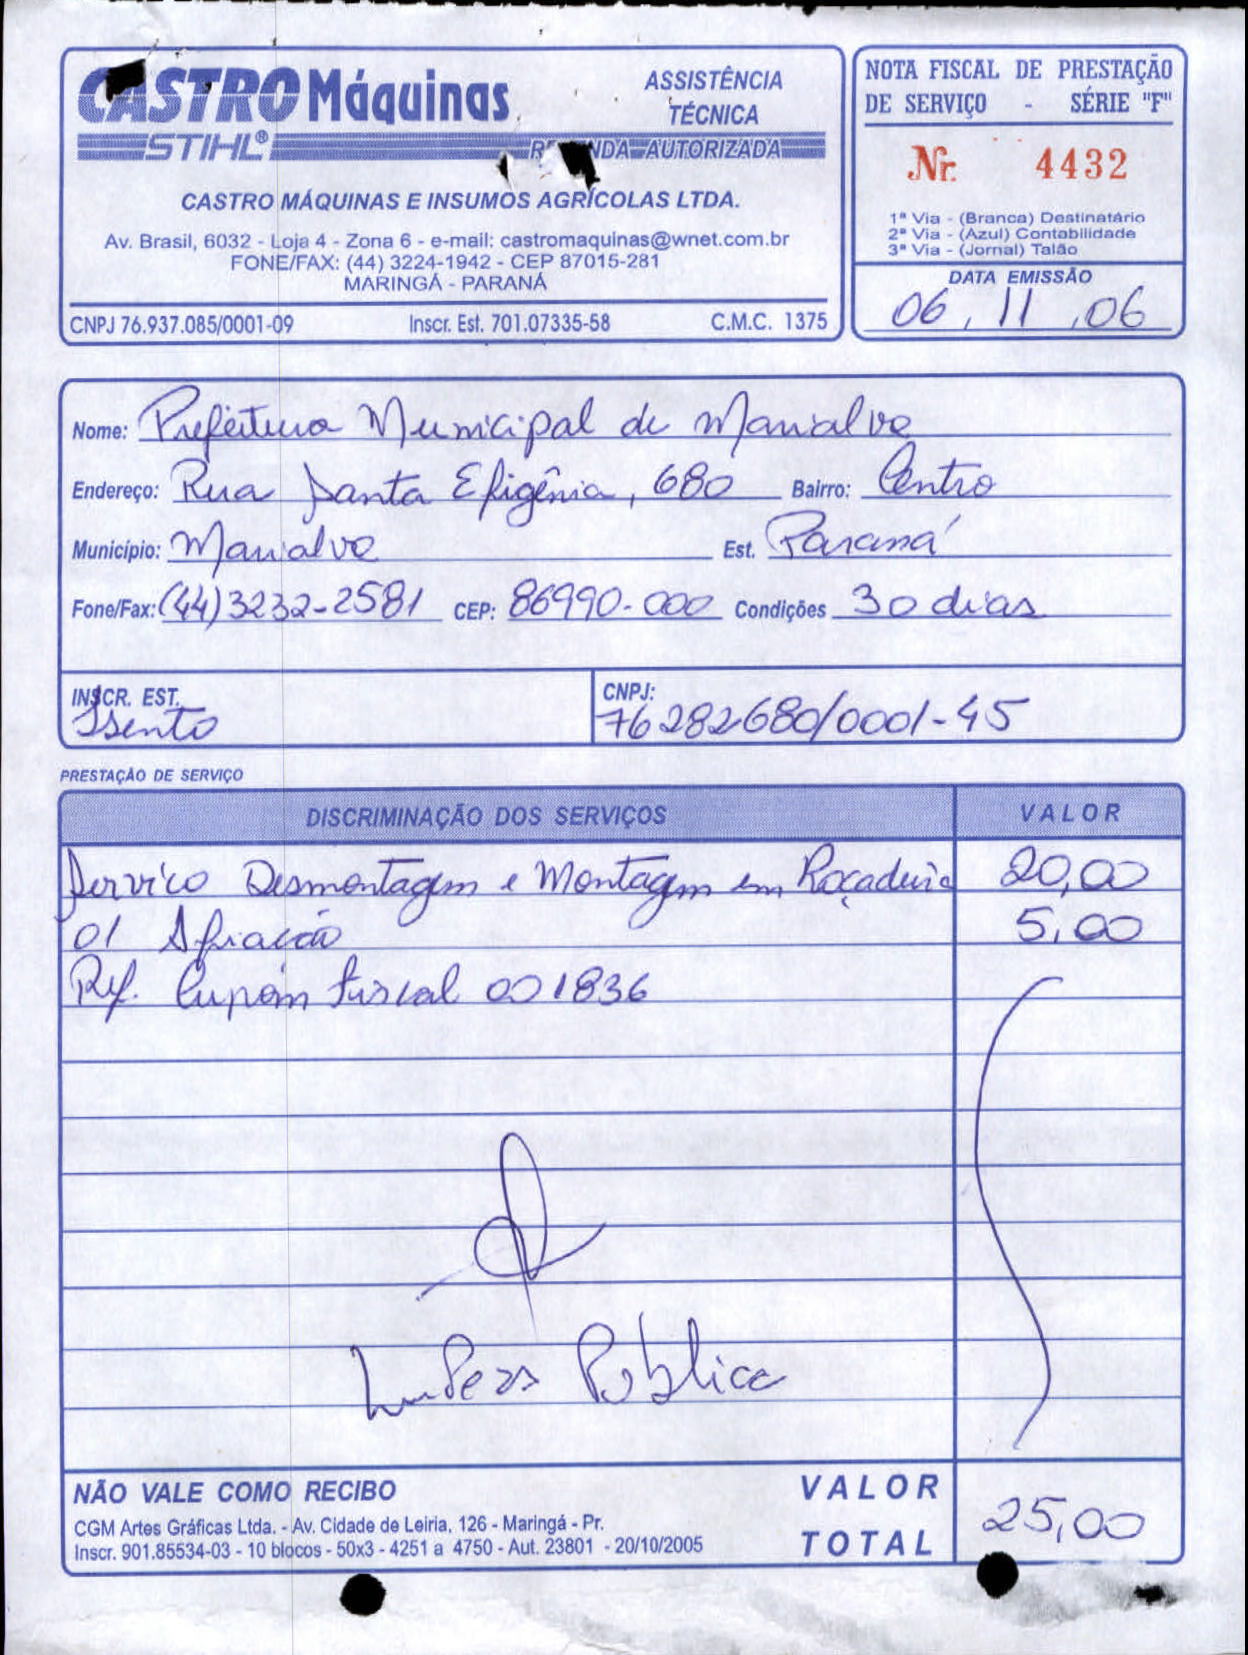 CASTRO Máquinas
ASSISTÊNCIA
TÉCNICA
STIHL®
AUTORIZADA
CASTRO MÁQUINAS E INSUMOS AGRÍCOLAS LTDA.
Av. Brasil, 6032 - Loja 4 - Zona 6 - e-mail: castromaquinas@wnet.com.br
FONE/FAX: (44) 3224-1942 - CEP 87015-281
MARINGÁ - PARANÁ
CNPJ 76.937.085/0001-09 Inscr. Est. 701.07335-58 C.M.C. 1375
NOTA FISCAL DE PRESTAÇÃO
DE SERVIÇO - SÉRIE "F"
Nr. 4432
1ª Via - (Branca) Destinatário
2ª Via - (Azul) Contabilidade
3ª Via - (Jornal) Talão
DATA EMISSÃO
06, 11, 06
Nome: Prefeitura Municipal de Marialva
Endereço: Rua Santa Efigênia, 680 Bairro: Centro
Município: Marialva Est. Paraná
Fone/Fax: (44) 3232-2581 CEP: 86990-000 Condições 30 dias
INSCR. EST.
Isento
CNPJ:
76282680/0001-45
PRESTAÇÃO DE SERVIÇO
DISCRIMINAÇÃO DOS SERVIÇOS VALOR
Servico Desmontagem e Montagem em Roçadeira 20,00
01 Afiacão 5,00
Ref. Cupom Fiscal 001836
Publica
NÃO VALE COMO RECIBO
CGM Artes Gráficas Ltda. - Av. Cidade de Leiria, 126 - Maringá - Pr.
Inscr. 901.85534-03 - 10 blocos - 50x3 - 4251 a 4750 - Aut. 23801 - 20/10/2005
VALOR
TOTAL
25,00